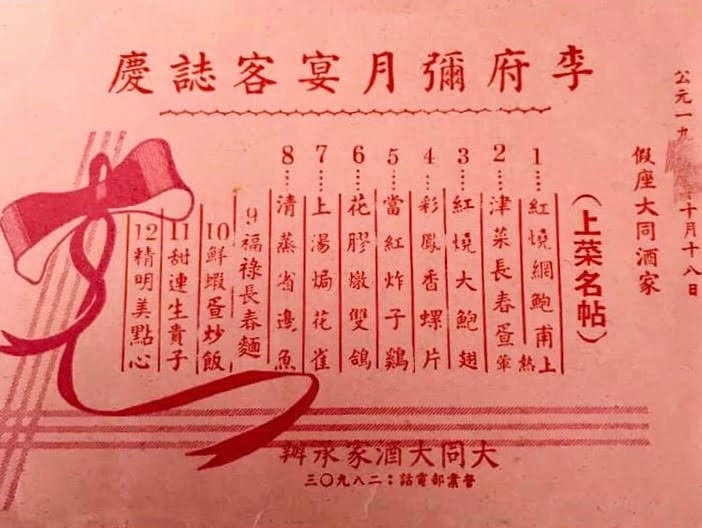 李府彌月宴客誌慶
公元一九 十月十八日
假座大同酒家
(上菜名帖)
1……紅燒網鮑甫
2……津菜長春蛋
上熱葷
3……紅燒大鮑翅
4……彩鳳香螺片
5……當紅炸子鷄
6……花膠燉雙鴿
7……上湯焗花雀
8……清蒸省邊魚
9福祿長春麵
10鮮蝦蛋炒飯
11甜連生貴子
12精明美點心
大同大酒家承辦
營業部電話：二八九〇三